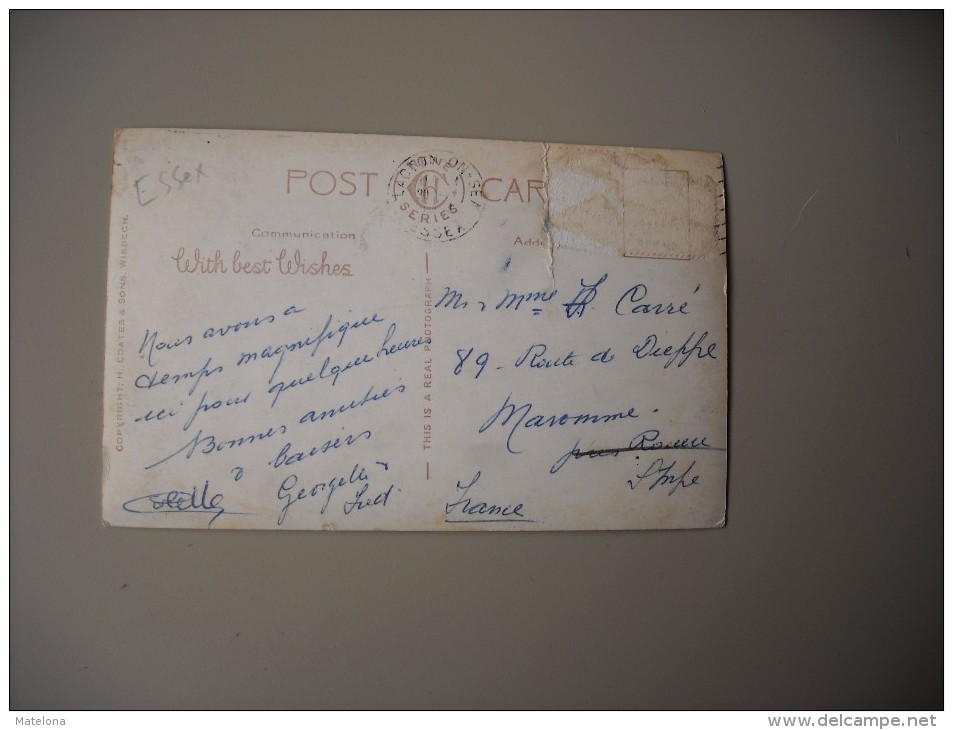 Essex
POST CAR
CLACTON-ON-SEA
ESSEX
SERIES
Communication
With best Wishes
Nous avons a
temps magnifique
ici pour quelque heures
Bonnes amitiés
& baisers
Georgette &
Fred
Mr & Mme Carré
89 - Route de Dieppe
Maromme -
près Rouen
S/Infe
France
COPYRIGHT: H. COATES & SONS, WISBECH.
THIS IS A REAL PHOTOGRAPH
Matelona
www.delcampe.net